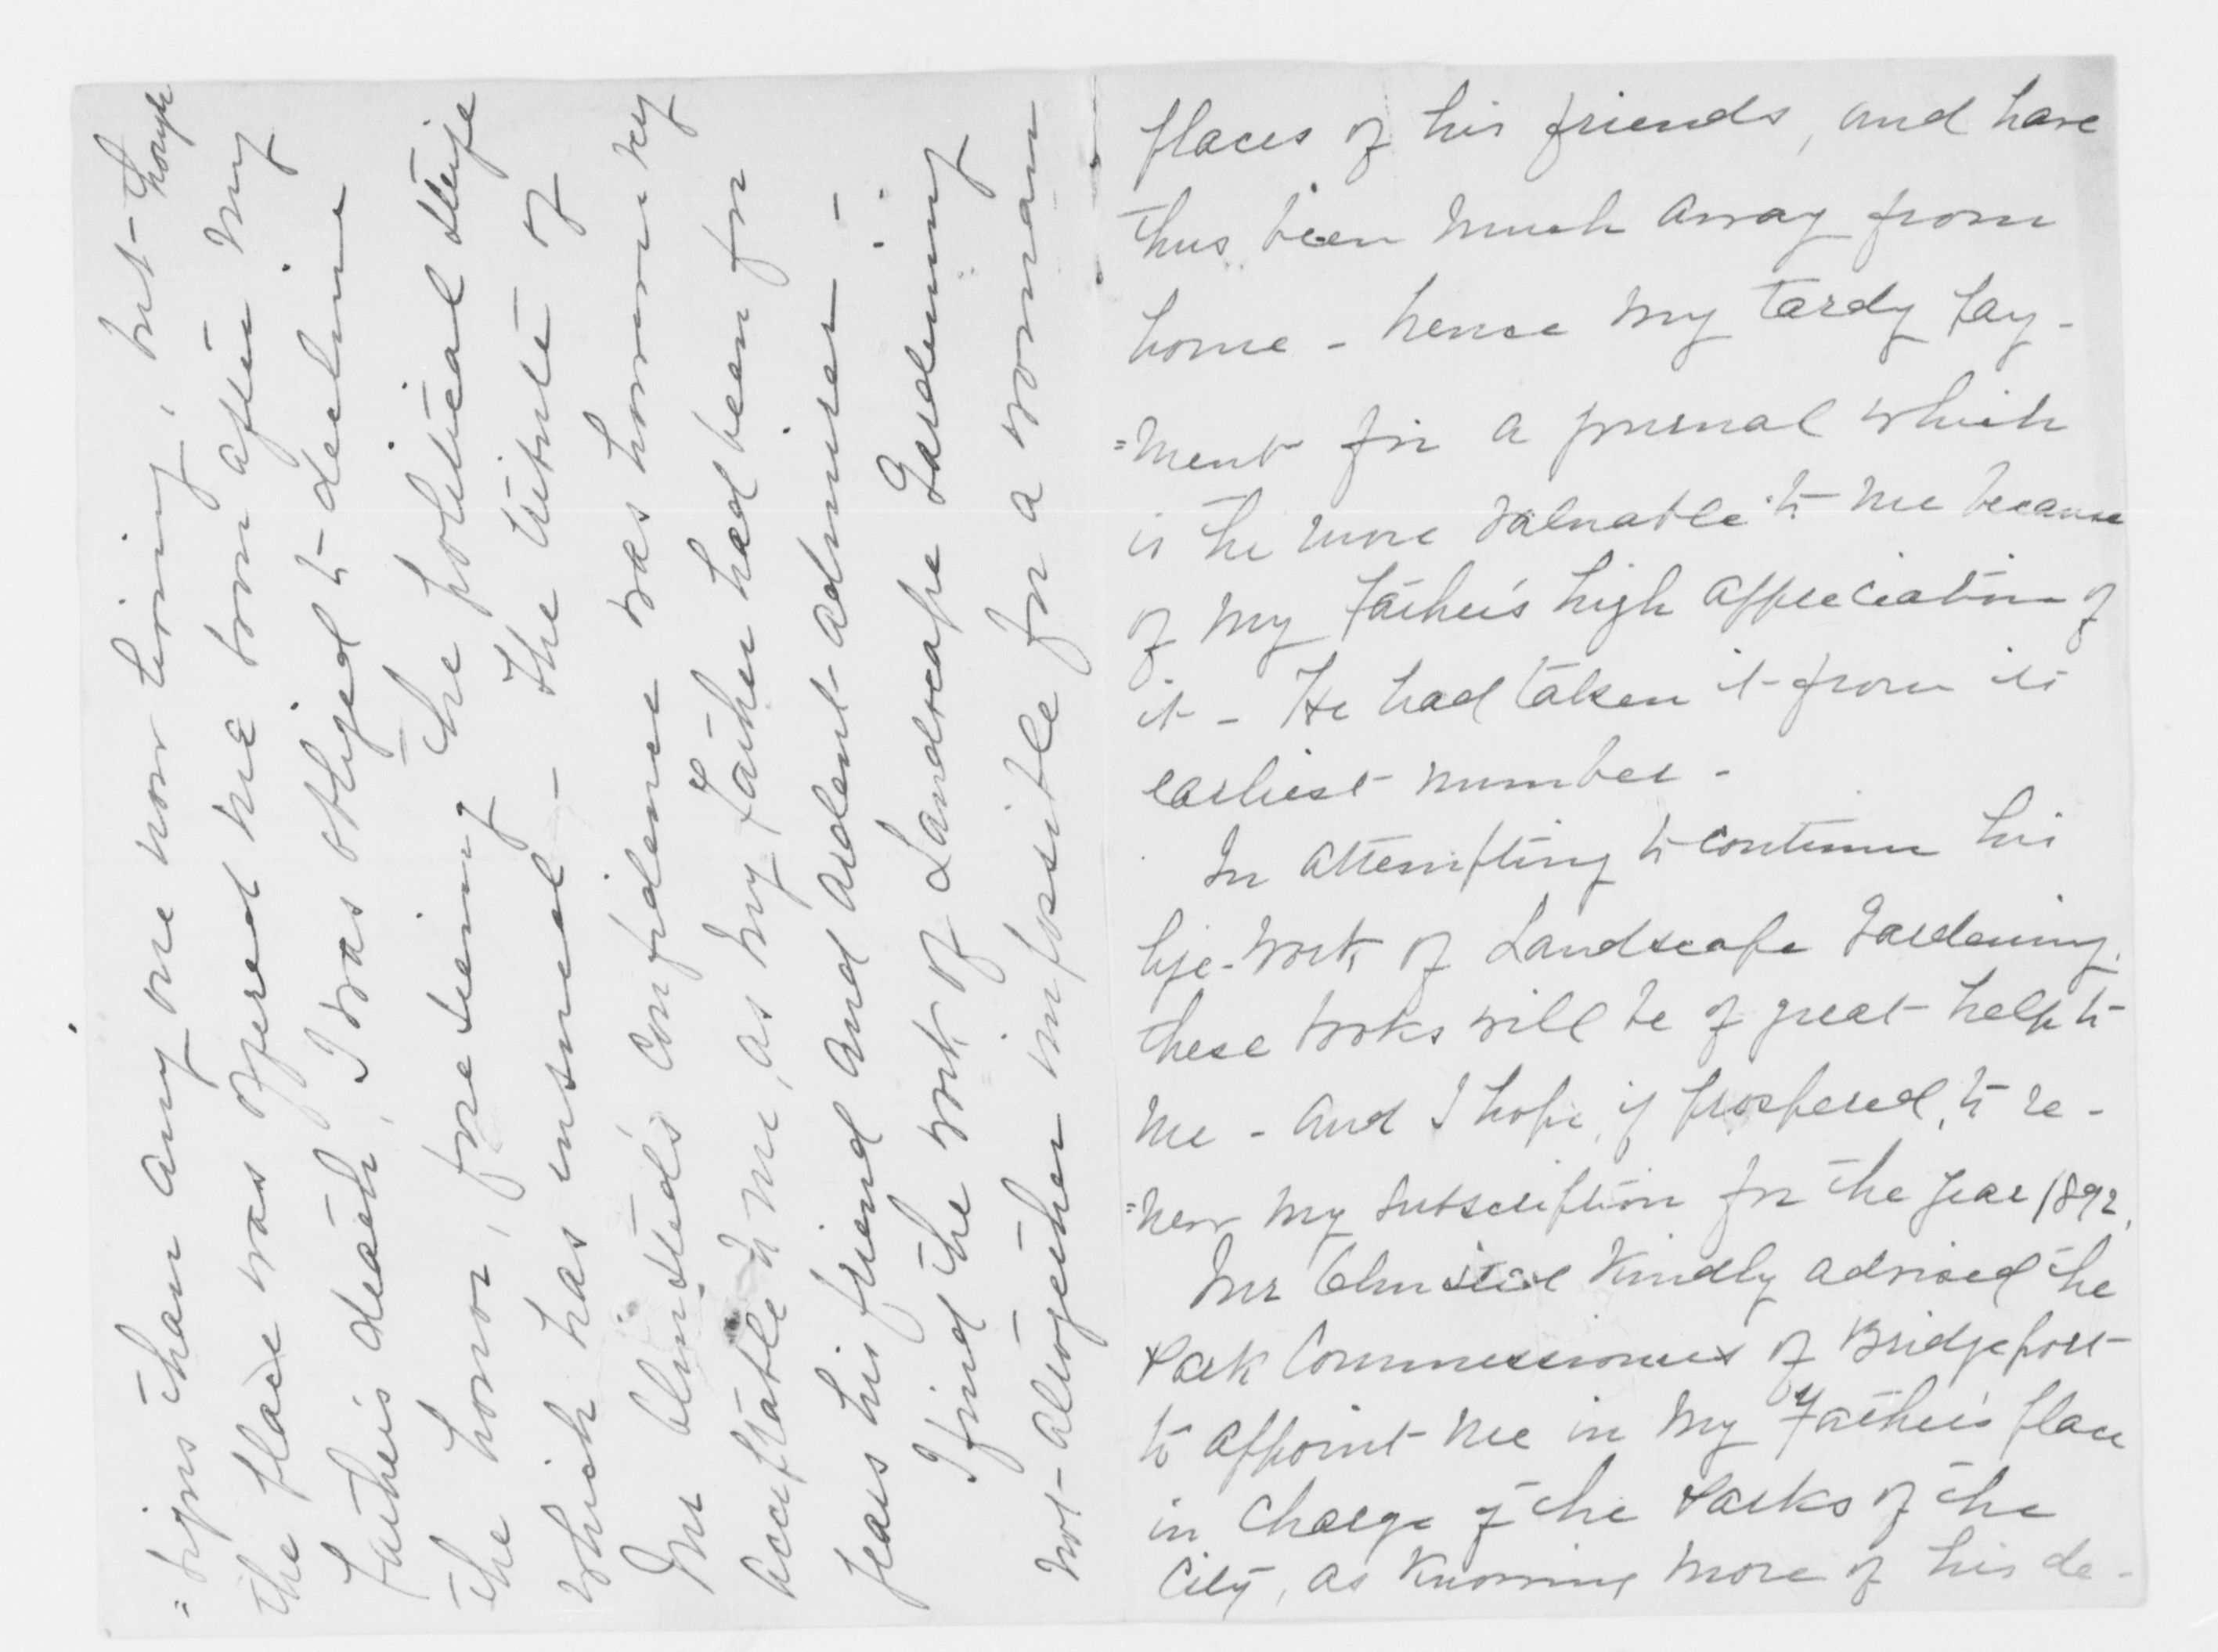 places of his friends, and have
thus been much away from
home - hence my tardy pay-
=ment for a journal which
is the more valuable to me because
of my Father's high appreciation of
it - He had taken it from its
earliest number -
In attempting to continue his
life-work of Landscape Gardening,
these books will be of great help to
me - and I hope, if prospered, to re-
=new my subscription for the year 1892.
Mr Olmsted kindly advised the
Park Commissioners of Bridgeport
to appoint me in my Father's place
in charge of the Parks of the
City, as knowing more of his de-
=signs than any one now living, but though
the place was offered me soon after my
Father's death, I was obliged to decline
the honor, foreseeing the political strife
which has ensued - the tribute of
Mr Olmsted's confidence was however very
acceptable to me, as my Father had been for
years his friend and ardent admirer -
I find the work of Landscape Gardening
not altogether impossible for a woman